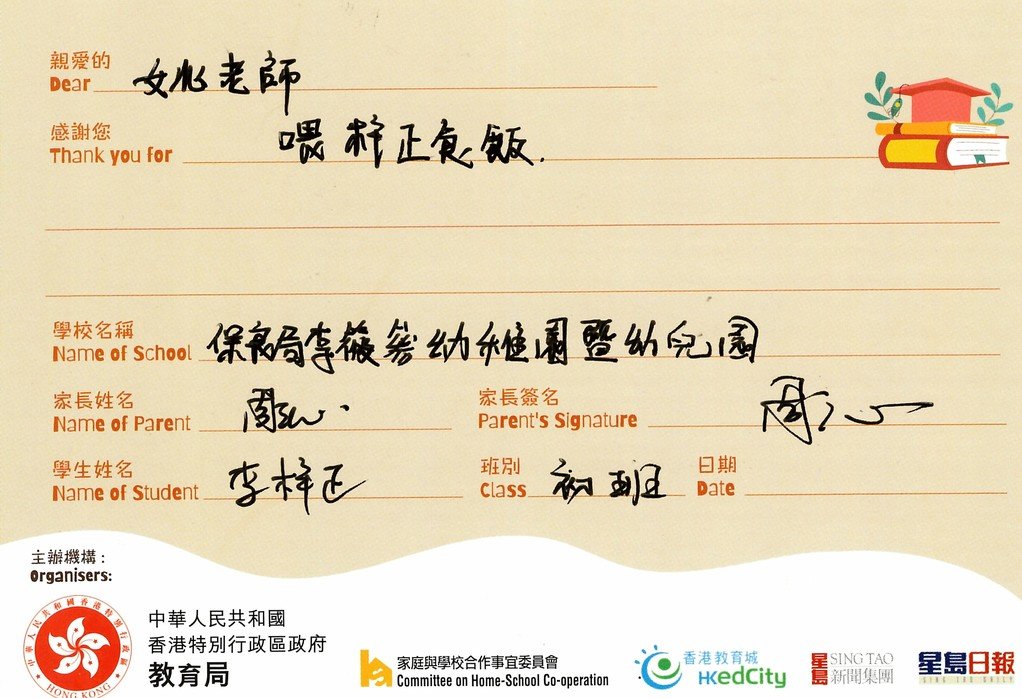 親愛的
Dear 姚老師
感謝您
Thank you for 喂梓正食飯.
學校名稱
Name of School 保良局李筱參幼稚園暨幼兒園
家長姓名
Name of Parent 周心
家長簽名
Parent's Signature 周心
學生姓名
Name of Student 李梓正
班別
Class 初班
日期
Date
主辦機構：
Organisers:
中華人民共和國香港特別行政區
HONG KONG
中華人民共和國
香港特別行政區政府
教育局
家庭與學校合作事宜委員會
Committee on Home-School Co-operation
香港教育城
HKedCity
星島 SING TAO
新聞集團
星島日報
SING TAO DAILY